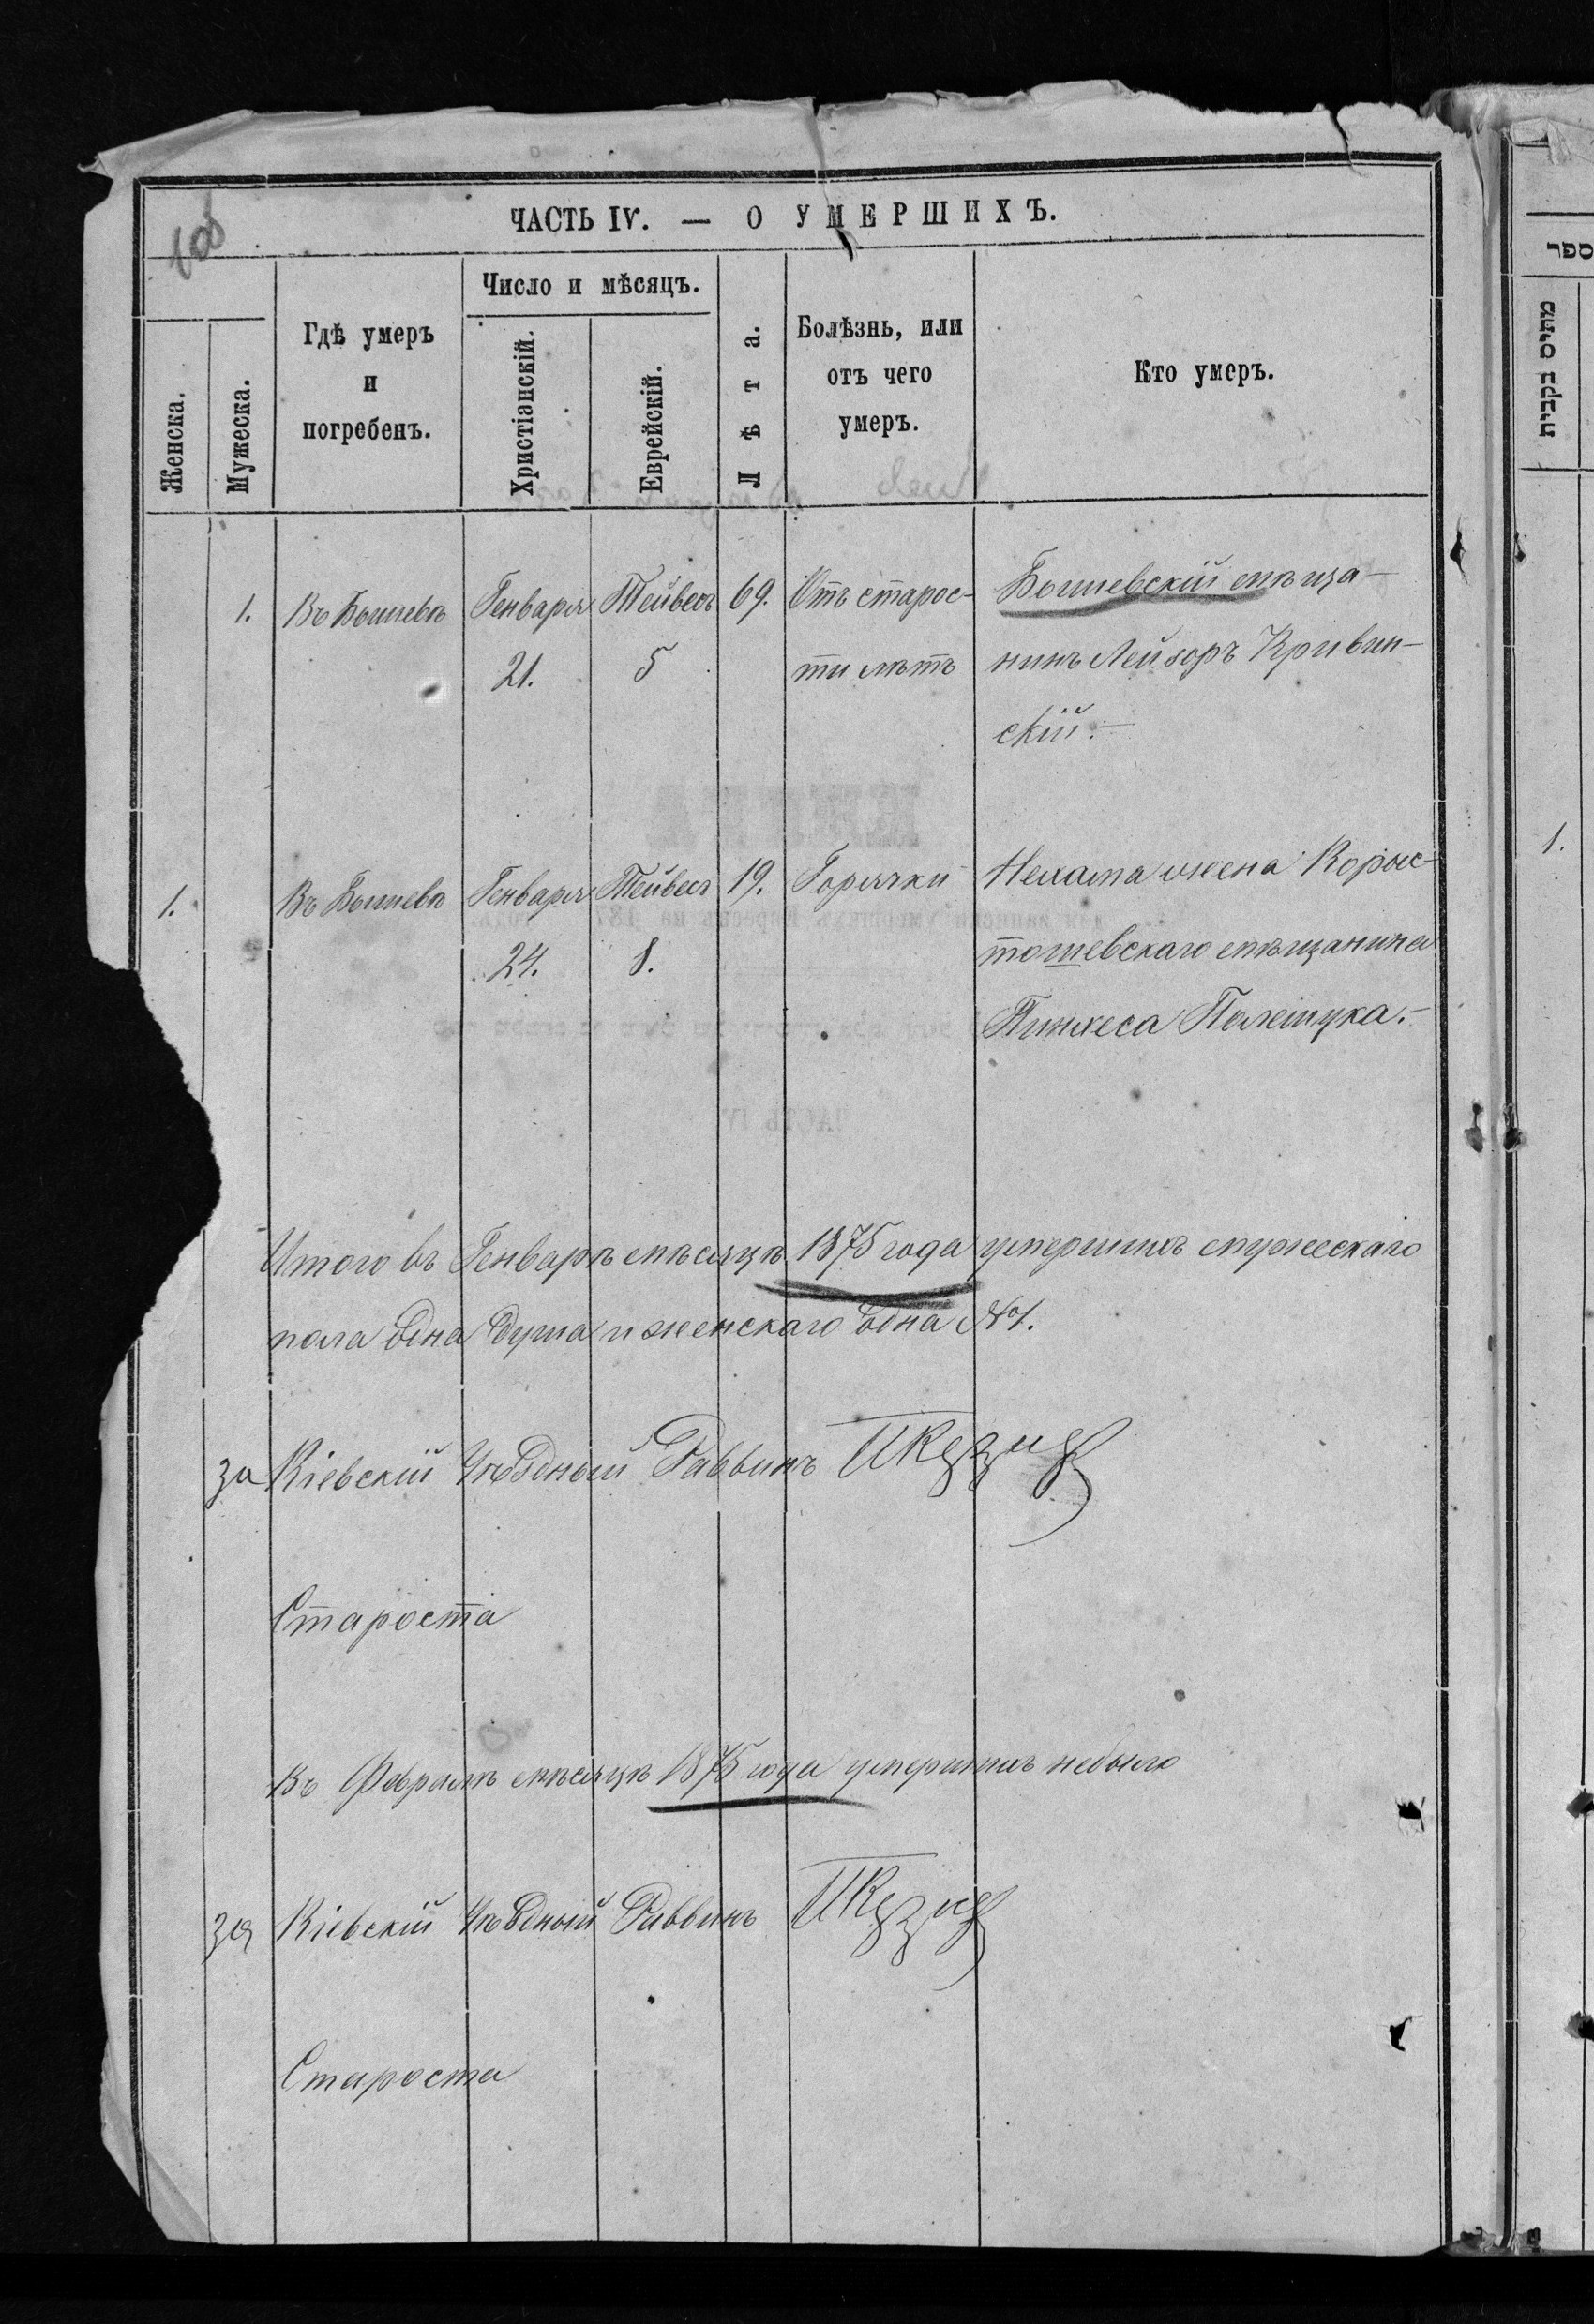 ЧАСТЬ IV. — О УМЕРШИХЪ.
Женска.
Мужеска.
Гдѣ умеръ
и
погребенъ.
Число и мѣсяцъ.
Христіанскій.
Еврейскій.
Лѣта.
Болѣзнь, или
отъ чего
умеръ.
Кто умеръ.
1. Въ Бышевѣ Генваря Тейвесъ 69. Отъ старос- Бышевскій мѣща-
21. 5 ти лѣтъ нинъ Лейзоръ Кривин-
скій.—
1. Въ Бышевѣ Генваря Тейвесъ 19. Горячки Нехама жена Корыс-
24. 8. тошевскаго мѣщанина
Пинхеса Полещука.—
Итого въ Генварѣ мѣсяцѣ 1875 года умершихъ мужескаго
пола одна душа и женскаго одна №1.
за Кіевскій Уѣздный Раввинъ
Староста
Въ Февралѣ мѣсяцѣ 1875 года умершихъ небыло
за Кіевскій Уѣздный Раввинъ
Староста
ספר
1.